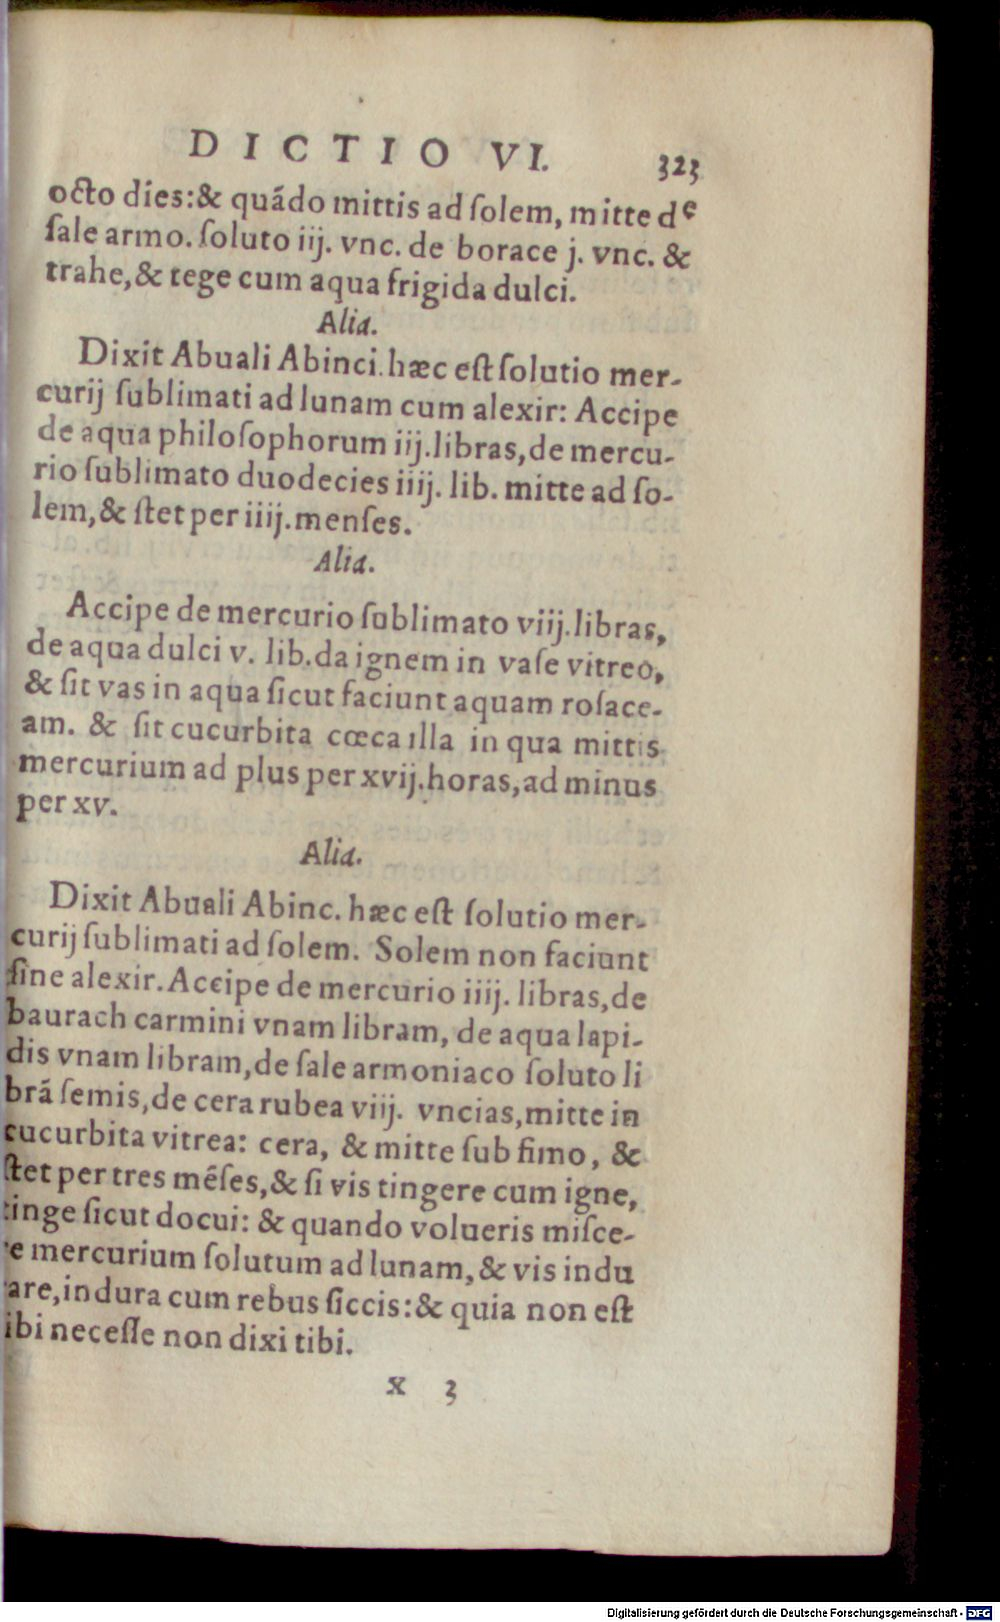 DICTIO VI. 323
octo dies:& quádo mittis ad ſolem, mitte de
ſale armo. ſoluto iij. vnc. de borace j. vnc. &
trahe,& tege cum aqua frigida dulci.
Alia.
Dixit Abuali Abinci. hæc eſt ſolutio mer-
curij ſublimati ad lunam cum alexir: Accipe
de aqua philoſophorum iij.libras,de mercu-
rio ſublimato duodecies iiij. lib. mitte ad ſo-
lem,& ſtet per iiij.menſes.
Alia.
Accipe de mercurio ſublimato viij.libras,
de aqua dulci v. lib.da ignem in vaſe vitreo,
& ſit vas in aqua ſicut faciunt aquam roſace-
am. & ſit cucurbita cœca illa in qua mittis
mercurium ad plus per xvij.horas,ad minus
per xv.
Alia.
Dixit Abuali Abinc. hæc eſt ſolutio mer-
curij ſublimati ad ſolem. Solem non faciunt
ſine alexir. Accipe de mercurio iiij. libras,de
baurach carmini vnam libram, de aqua lapi-
dis vnam libram,de ſale armoniaco ſoluto li
brã ſemis,de cera rubea viij. vncias,mitte in
cucurbita vitrea: cera, & mitte ſub fimo, &
ſtet per tres mẽſes,& ſi vis tingere cum igne,
tinge ſicut docui: & quando volueris miſce-
re mercurium ſolutum ad lunam,& vis indu
rare,indura cum rebus ſiccis:& quia non eſt
ibi neceſſe non dixi tibi.
x 3
Digitalisierung gefördert durch die Deutsche Forschungsgemeinschaft - DFG